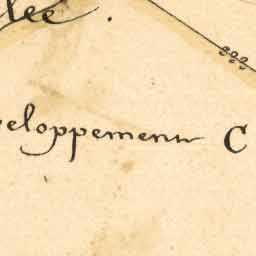 lée.
veloppement C